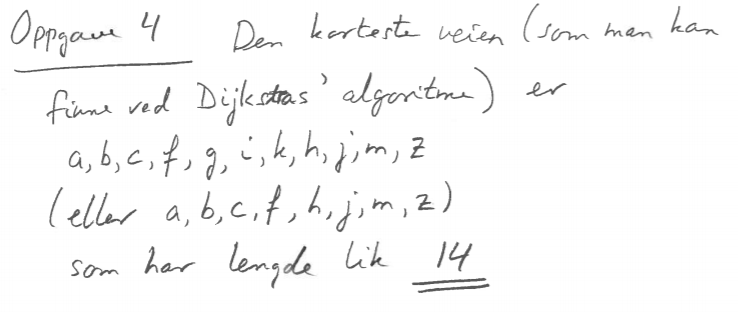 Oppgave 4 Den korteste veien (som man kan
finne ved Dijkstras' algoritme) er
a, b, c, f, g, i, k, h, j, m, z
(eller a, b, c, f, h, j, m, z)
som har lengde lik 14